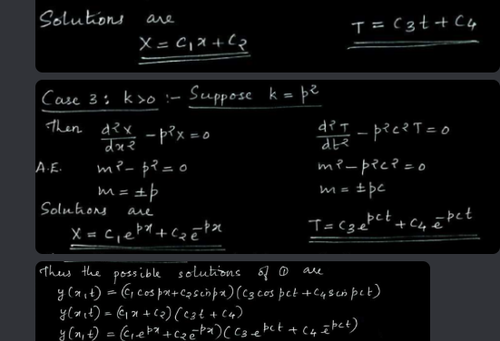 Solutions are
X = C₁x + C₂
T = C₃t + C₄
Case 3 : k>0 :- Suppose k = p²
Then d²X/dx² - p²X = 0
d²T/dt² - p²c²T = 0
A.E. m² - p² = 0
m² - p²c² = 0
m = ±p
m = ±pc
Solutions are
X = C₁e^px + C₂e^-px
T = C₃e^pct + C₄e^-pct
Thus the possible solutions of ① are
y(x,t) = (C₁ cos px + C₂ sin px)(C₃ cos pct + C₄ sin pct)
y(x,t) = (C₁x + C₂)(C₃t + C₄)
y(x,t) = (C₁e^px + C₂e^-px)(C₃e^pct + C₄e^-pct)